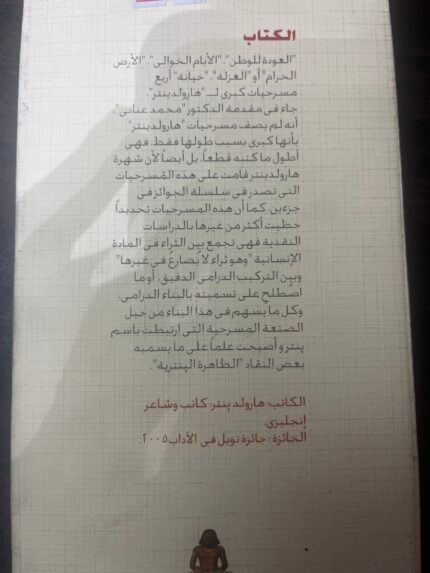 الكتاب
"العودة للوطن"، "الأيام الخوالى"، "الأرض
الحرام" أو "العزلة"، "خيانة" أربع
مسرحيات كبرى لـ "هارولدبنتر"
جاء فى مقدمة الدكتور "محمد عنانى"
أنه لم يصف مسرحيات "هارولدبنتر"
بأنها كبرى بسبب طولها فقط، فهى
أطول ما كتبه قطعاً، بل أيضاً لأن شهرة
هارولدبنتر قامت على هذه المسرحيات
التى تصدر فى سلسلة الجوائز فى
جزءين، كما أن هذه المسرحيات تحديداً
حظيت أكثر من غيرها بالدراسات
النقدية فهى تجمع بين الثراء فى المادة
الإنسانية "وهو ثراء لا يضارع فى غيرها"
وبين التركيب الدرامى الدقيق، أو ما
اصطلح على تسميته بالبناء الدرامى،
وكل ما يسهم فى هذا البناء من حيل
الصنعة المسرحية التى ارتبطت باسم
بنتر و أصبحت علماً على ما يسميه
بعض النقاد "الظاهرة البنترية".
الكاتب: هارولد بنتر: كاتب وشاعر
إنجليزى.
الجائزة : جائزة نوبل فى الآداب ٢٠٠٥